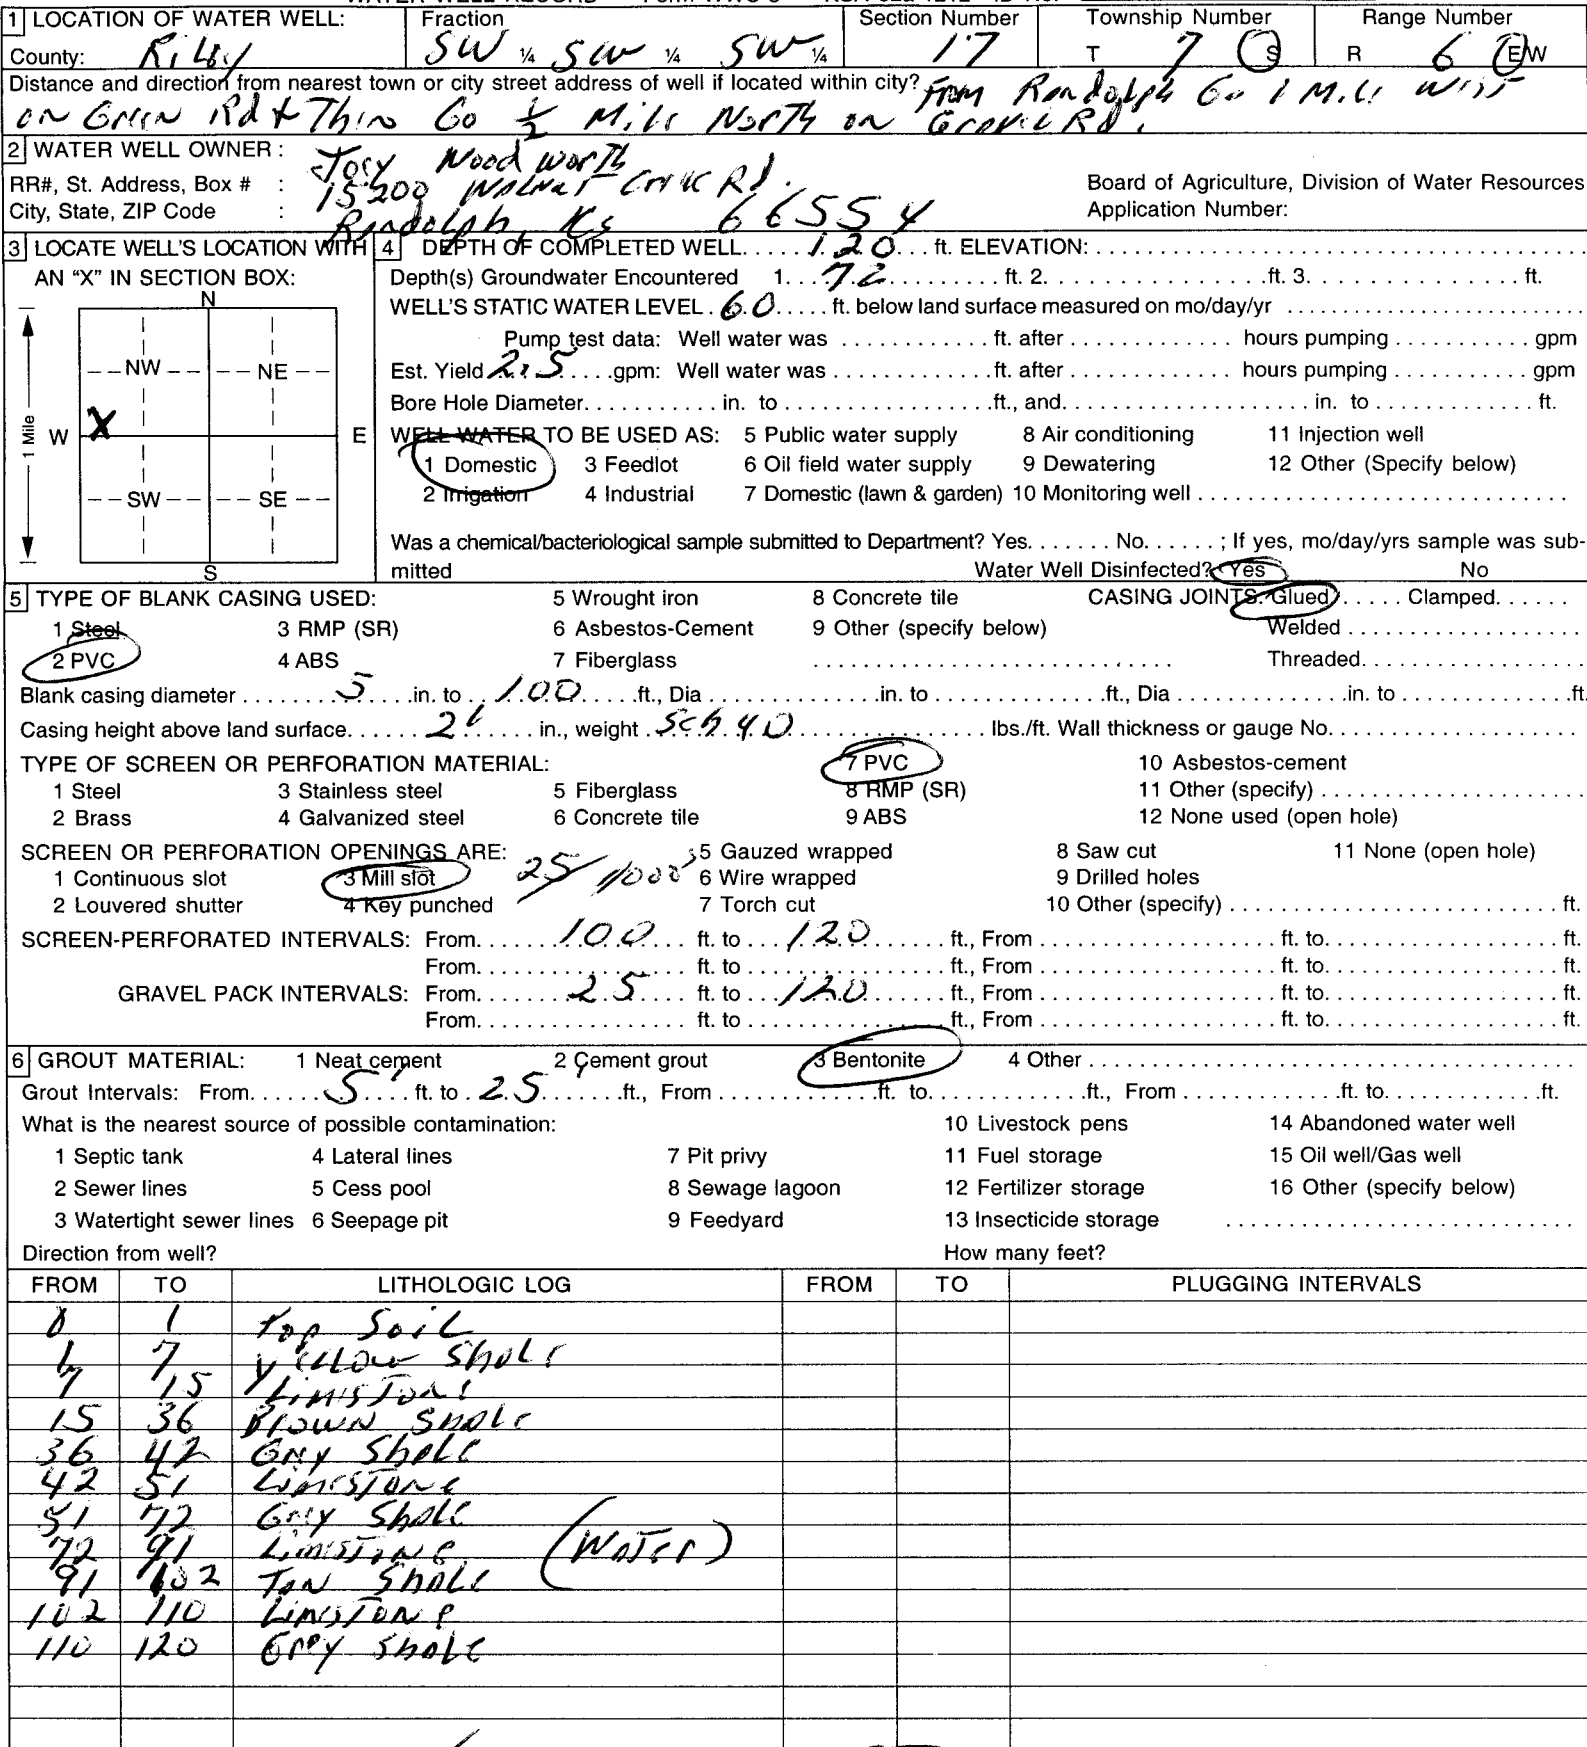 1 LOCATION OF WATER WELL: Fraction Section Number Township Number Range Number
County: Riley SW ¼ SW ¼ SW ¼ 17 T 7 S R 6 E/W
Distance and direction from nearest town or city street address of well if located within city? From Randolph Go 1 Mile West
on Green Rd & Then Go ½ Mile North on Gravel Rd.
2 WATER WELL OWNER: Woodworth
RR#, St. Address, Box # : 15200 Walnut Creek Rd. Board of Agriculture, Division of Water Resources
City, State, ZIP Code : Randolph, Ks 66554 Application Number:
3 LOCATE WELL'S LOCATION WITH 4 DEPTH OF COMPLETED WELL 120 ft. ELEVATION:
AN "X" IN SECTION BOX: Depth(s) Groundwater Encountered 1. 72 ft. 2. ft. 3. ft.
N WELL'S STATIC WATER LEVEL 60 ft. below land surface measured on mo/day/yr
Pump test data: Well water was ft. after hours pumping gpm
NW NE Est. Yield 2.5 gpm: Well water was ft. after hours pumping gpm
Bore Hole Diameter in. to ft., and in. to ft.
1 Mile W X E WELL WATER TO BE USED AS: 5 Public water supply 8 Air conditioning 11 Injection well
1 Domestic 3 Feedlot 6 Oil field water supply 9 Dewatering 12 Other (Specify below)
SW SE 2 Irrigation 4 Industrial 7 Domestic (lawn & garden) 10 Monitoring well
Was a chemical/bacteriological sample submitted to Department? Yes No ; If yes, mo/day/yrs sample was sub-
S mitted Water Well Disinfected? Yes No
5 TYPE OF BLANK CASING USED: 5 Wrought iron 8 Concrete tile CASING JOINTS: Glued Clamped
1 Steel 3 RMP (SR) 6 Asbestos-Cement 9 Other (specify below) Welded
2 PVC 4 ABS 7 Fiberglass Threaded
Blank casing diameter 5 in. to 100 ft., Dia in. to ft., Dia in. to ft.
Casing height above land surface 2' in., weight Sch 40 lbs./ft. Wall thickness or gauge No.
TYPE OF SCREEN OR PERFORATION MATERIAL: 7 PVC 10 Asbestos-cement
1 Steel 3 Stainless steel 5 Fiberglass 8 RMP (SR) 11 Other (specify)
2 Brass 4 Galvanized steel 6 Concrete tile 9 ABS 12 None used (open hole)
SCREEN OR PERFORATION OPENINGS ARE: 5 Gauzed wrapped 8 Saw cut 11 None (open hole)
1 Continuous slot 3 Mill slot 25/1000 6 Wire wrapped 9 Drilled holes
2 Louvered shutter 4 Key punched 7 Torch cut 10 Other (specify) ft.
SCREEN-PERFORATED INTERVALS: From 100 ft. to 120 ft., From ft. to ft.
From ft. to ft., From ft. to ft.
GRAVEL PACK INTERVALS: From 25 ft. to 120 ft., From ft. to ft.
From ft. to ft., From ft. to ft.
6 GROUT MATERIAL: 1 Neat cement 2 Cement grout 3 Bentonite 4 Other
Grout Intervals: From 5' ft. to 25' ft., From ft. to ft., From ft. to ft.
What is the nearest source of possible contamination: 10 Livestock pens 14 Abandoned water well
1 Septic tank 4 Lateral lines 7 Pit privy 11 Fuel storage 15 Oil well/Gas well
2 Sewer lines 5 Cess pool 8 Sewage lagoon 12 Fertilizer storage 16 Other (specify below)
3 Watertight sewer lines 6 Seepage pit 9 Feedyard 13 Insecticide storage
Direction from well? How many feet?
FROM TO LITHOLOGIC LOG FROM TO PLUGGING INTERVALS
0 1 Top Soil
1 7 Yellow Shale
7 15 Limestone
15 36 Brown Shale
36 42 Grey Shale
42 51 Limestone
51 72 Grey Shale
72 91 Limestone (Water)
91 102 Tan Shale
102 110 Limestone
110 120 Grey Shale